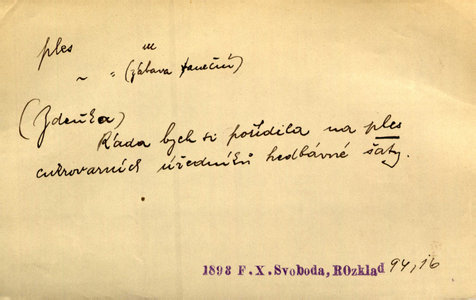 ples m
~ " (zábava taneční)
(Zdeňka)
Ráda bych si pořídila na ples
cukrovarních úředníků hedbávné šaty.
1893 F.X.Svoboda, ROzklad 94,16